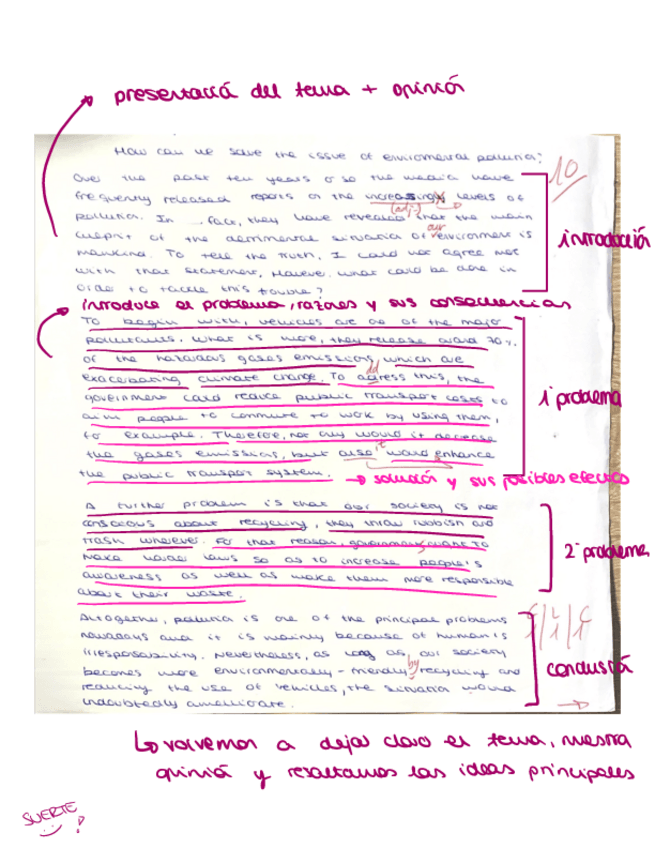 presentació del tema + opinió
How can we solve the issue of enviromental pollution?
10
Over the past ten years or so the media have
frequently released reports on the increasingly levels of
(adj.)
pollution. In fact, they have revealed that the main
culprit of the detrimental situation of our environment is
mankind. To tell the truth, I could not agree more
with that statement. However, what could be done in
order to tackle this trouble?
introducción
introduce el problema, razones y sus consecuencias
To begin with, vehicles are one of the major
pollutants. What is more, they release around 70%
of the hazardous gases emissions, which are
exacerbating climate change. To adress this, the
dd
government could reduce public transport costs to
aim people to commute to work by using them,
for example. Therefore, not only would it decrease
the gases emissions, but also would enhance
it
the public transport system.
1 problema
→ solución y sus posibles efectos
A further problem is that our society is not
conscious about recycling, they throw rubbish and
trash wherever. For that reason, government want to
make harder laws so as to increase people's
awareness as well as make them more responsible
about their waste.
2º problema
Altogether, pollution is one of the principal problems
nowadays and it is mainly because of human's
irresponsability. Nevertheless, as long as our society
becomes more environmentally-friendly by recycling and
reducing the use of vehicles, the situation would
undoubtedly ameliorate.
conclusió
volvemos a dejar claro el tema, nuestra
opinió y resaltamos las ideas principales
SUERTE